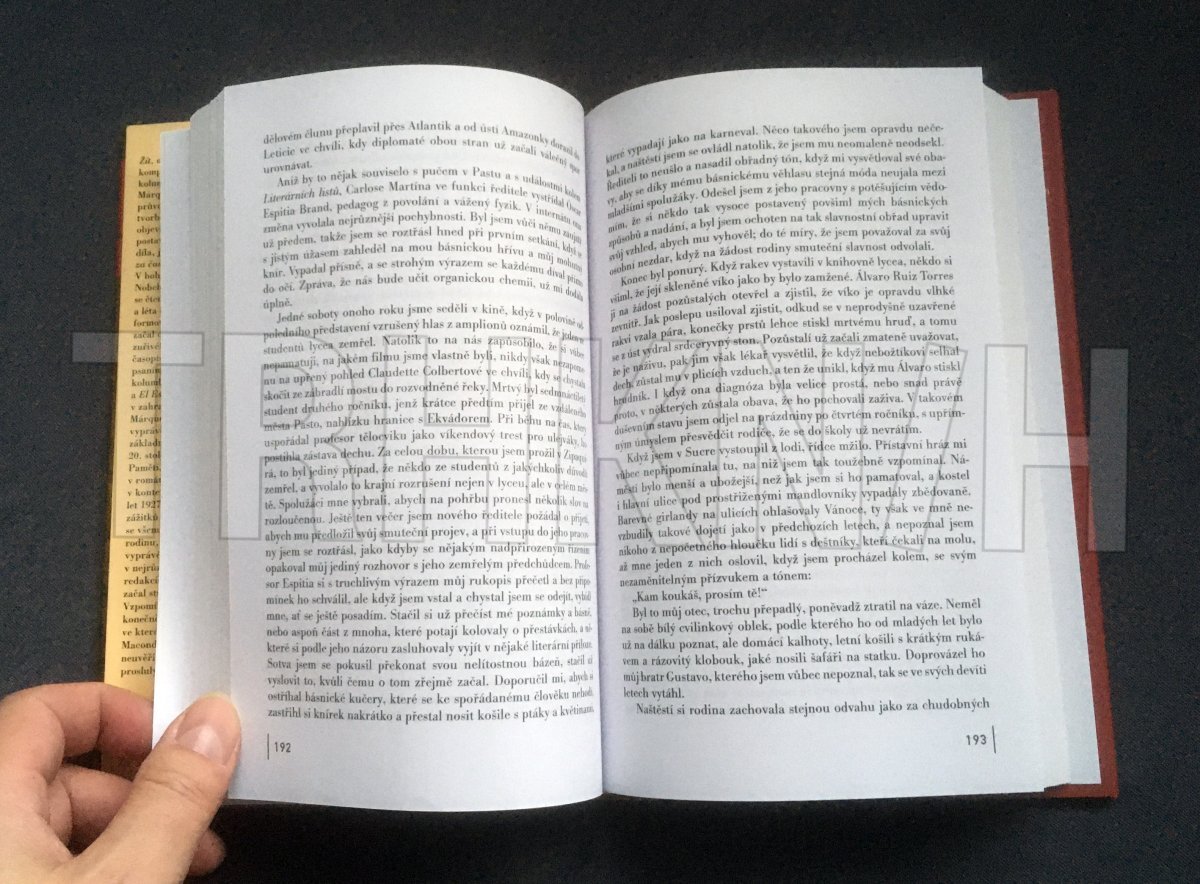 Žít,
komp
kolum
Márqu
průvo
tvorb
objev
postav
díla, j
za čas
V boh
Nobel
se čte
a léta
formov
začal
zuřivé
časopis
psaním
kolumb
a El Es
v zahra
Márque
vypráv
základn
20. stole
Paměti,
v román
v konte
let 1927
zážitků
se všem
rodinu,
vyprávě
v nejrůz
redakci
začal st
Vzpomí
konečně
ve které
Macond
neuvěři
proslul
dělovém člunu přeplavil přes Atlantik a od ústí Amazonky dorazil do
Leticie ve chvíli, kdy diplomaté obou stran už začali válečný spor
urovnávat.
Aniž by to nějak souviselo s pučem v Pastu a s událostmi kolem
Literárních listů, Carlose Martína ve funkci ředitele vystřídal Óscar
Espitia Brand, pedagog z povolání a vážený fyzik. V internátu ona
změna vyvolala nejrůznější pochybnosti. Byl jsem vůči němu zaujatý
už předem, takže jsem se roztřásl hned při prvním setkání, když se
s jistým úžasem zahleděl na mou básnickou hřívu a můj mohutný
knír. Vypadal přísně, a se strohým výrazem se každému díval přímo
do očí. Zpráva, že nás bude učit organickou chemii, už mi dodila
úplně.
Jedné soboty onoho roku jsme seděli v kině, když v polovině od-
poledního představení vzrušený hlas z amplionů oznámil, že jeden ze
studentů lycea zemřel. Natolik to na nás zapůsobilo, že si vůbec
nepamatuji, na jakém filmu jsme vlastně byli, nikdy však nezapome-
nu na upřený pohled Claudette Colbertové ve chvíli, kdy se chystala
skočit ze zábradlí mostu do rozvodněné řeky. Mrtvý byl sedmnáctiletý
student druhého ročníku, jenž krátce předtím přijel ze vzdáleného
města Pasto, nablízku hranice s Ekvádorem. Při běhu na čas, který
uspořádal profesor tělocviku jako víkendový trest pro ulejváky, ho
postihla zástava dechu. Za celou dobu, kterou jsem prožil v Zipaqui-
rá, to byl jediný případ, že někdo ze studentů z jakýchkoliv důvodů
zemřel, a vyvolalo to krajní rozrušení nejen v lyceu, ale v celém měs-
tě. Spolužáci mne vybrali, abych na pohřbu pronesl několik slov na
rozloučenou. Ještě ten večer jsem nového ředitele požádal o přijetí,
abych mu předložil svůj smuteční projev, a při vstupu do jeho pracov-
ny jsem se roztřásl, jako kdyby se nějakým nadpřirozeným řízením
opakoval můj jediný rozhovor s jeho zemřelým předchůdcem. Profe-
sor Espitia si s truchlivým výrazem můj rukopis přečetl a bez připo-
mínek ho schválil, ale když jsem vstal a chystal jsem se odejít, vybídl
mne, ať se ještě posadím. Stačil si už přečíst mé poznámky a básně,
nebo aspoň část z mnoha, které potají kolovaly o přestávkách, a ně-
které si podle jeho názoru zasluhovaly vyjít v nějaké literární příloze.
Sotva jsem se pokusil překonat svou nelítostnou bázeň, stačil už
vyslovit to, kvůli čemu o tom zřejmě začal. Doporučil mi, abych si
ostříhal básnické kučery, které se ke spořádanému člověku nehodí,
zastřihl si knírek nakrátko a přestal nosit košile s ptáky a květinami,
192
které vypadají jako na karneval. Něco takového jsem opravdu neče-
kal, a naštěstí jsem se ovládl natolik, že jsem mu neomaleně neodsekl.
Řediteli to neušlo a nasadil obřadný tón, když mi vysvětloval své oba-
vy, aby se díky mému básnickému věhlasu stejná móda neujala mezi
mladšími spolužáky. Odešel jsem z jeho pracovny s potěšujícím vědo-
mím, že si někdo tak vysoce postavený povšiml mých básnických
způsobů a nadání, a byl jsem ochoten na tak slavnostní obřad upravit
svůj vzhled, abych mu vyhověl; do té míry, že jsem považoval za svůj
osobní nezdar, když na žádost rodiny smuteční slavnost odvolali.
Konec byl ponurý. Když rakev vystavili v knihovně lycea, někdo si
všiml, že její skleněné víko jako by bylo zamžené. Álvaro Ruiz Torres
ji na žádost pozůstalých otevřel a zjistil, že víko je opravdu vlhké
zevnitř. Jak poslepu usiloval zjistit, odkud se v neprodyšně uzavřené
rakvi vzala pára, konečky prstů lehce stiskl mrtvému hruď, a tomu
se z úst vydral srdceryvný ston. Pozůstalí už začali zmateně uvažovat,
že je naživu, pak jim však lékař vysvětlil, že když nebožtíkovi selhal
dech, zůstal mu v plicích vzduch, a ten že unikl, když mu Álvaro stiskl
hrudník. I když ona diagnóza byla velice prostá, nebo snad právě
proto, v některých zůstala obava, že ho pochovali zaživa. V takovém
duševním stavu jsem odjel na prázdniny po čtvrtém ročníku, s upřím-
ným úmyslem přesvědčit rodiče, že se do školy už nevrátím.
Když jsem v Sucre vystoupil z lodi, řídce mžilo. Přístavní hráz mi
vůbec nepřipomínala tu, na niž jsem tak toužebně vzpomínal. Ná-
městí bylo menší a ubožejší, než jak jsem si ho pamatoval, a kostel
i hlavní ulice pod prostřiženými mandlovníky vypadaly zbědovaně.
Barevné girlandy na ulicích ohlašovaly Vánoce, ty však ve mně ne-
vzbudily takové dojetí jako v předchozích letech, a nepoznal jsem
nikoho z nepočetného hloučku lidí s deštníky, kteří čekali na molu,
až mne jeden z nich oslovil, když jsem procházel kolem, se svým
nezaměnitelným přízvukem a tónem:
„Kam koukáš, prosím tě!“
Byl to můj otec, trochu přepadlý, poněvadž ztratil na váze. Neměl
na sobě bílý cvilinkový oblek, podle kterého ho od mladých let bylo
už na dálku poznat, ale domácí kalhoty, letní košili s krátkým ruká-
vem a rázovitý klobouk, jaké nosili šafáři na statku. Doprovázel ho
můj bratr Gustavo, kterého jsem vůbec nepoznal, tak se ve svých devíti
letech vytáhl.
Naštěstí si rodina zachovala stejnou odvahu jako za chudobných
193